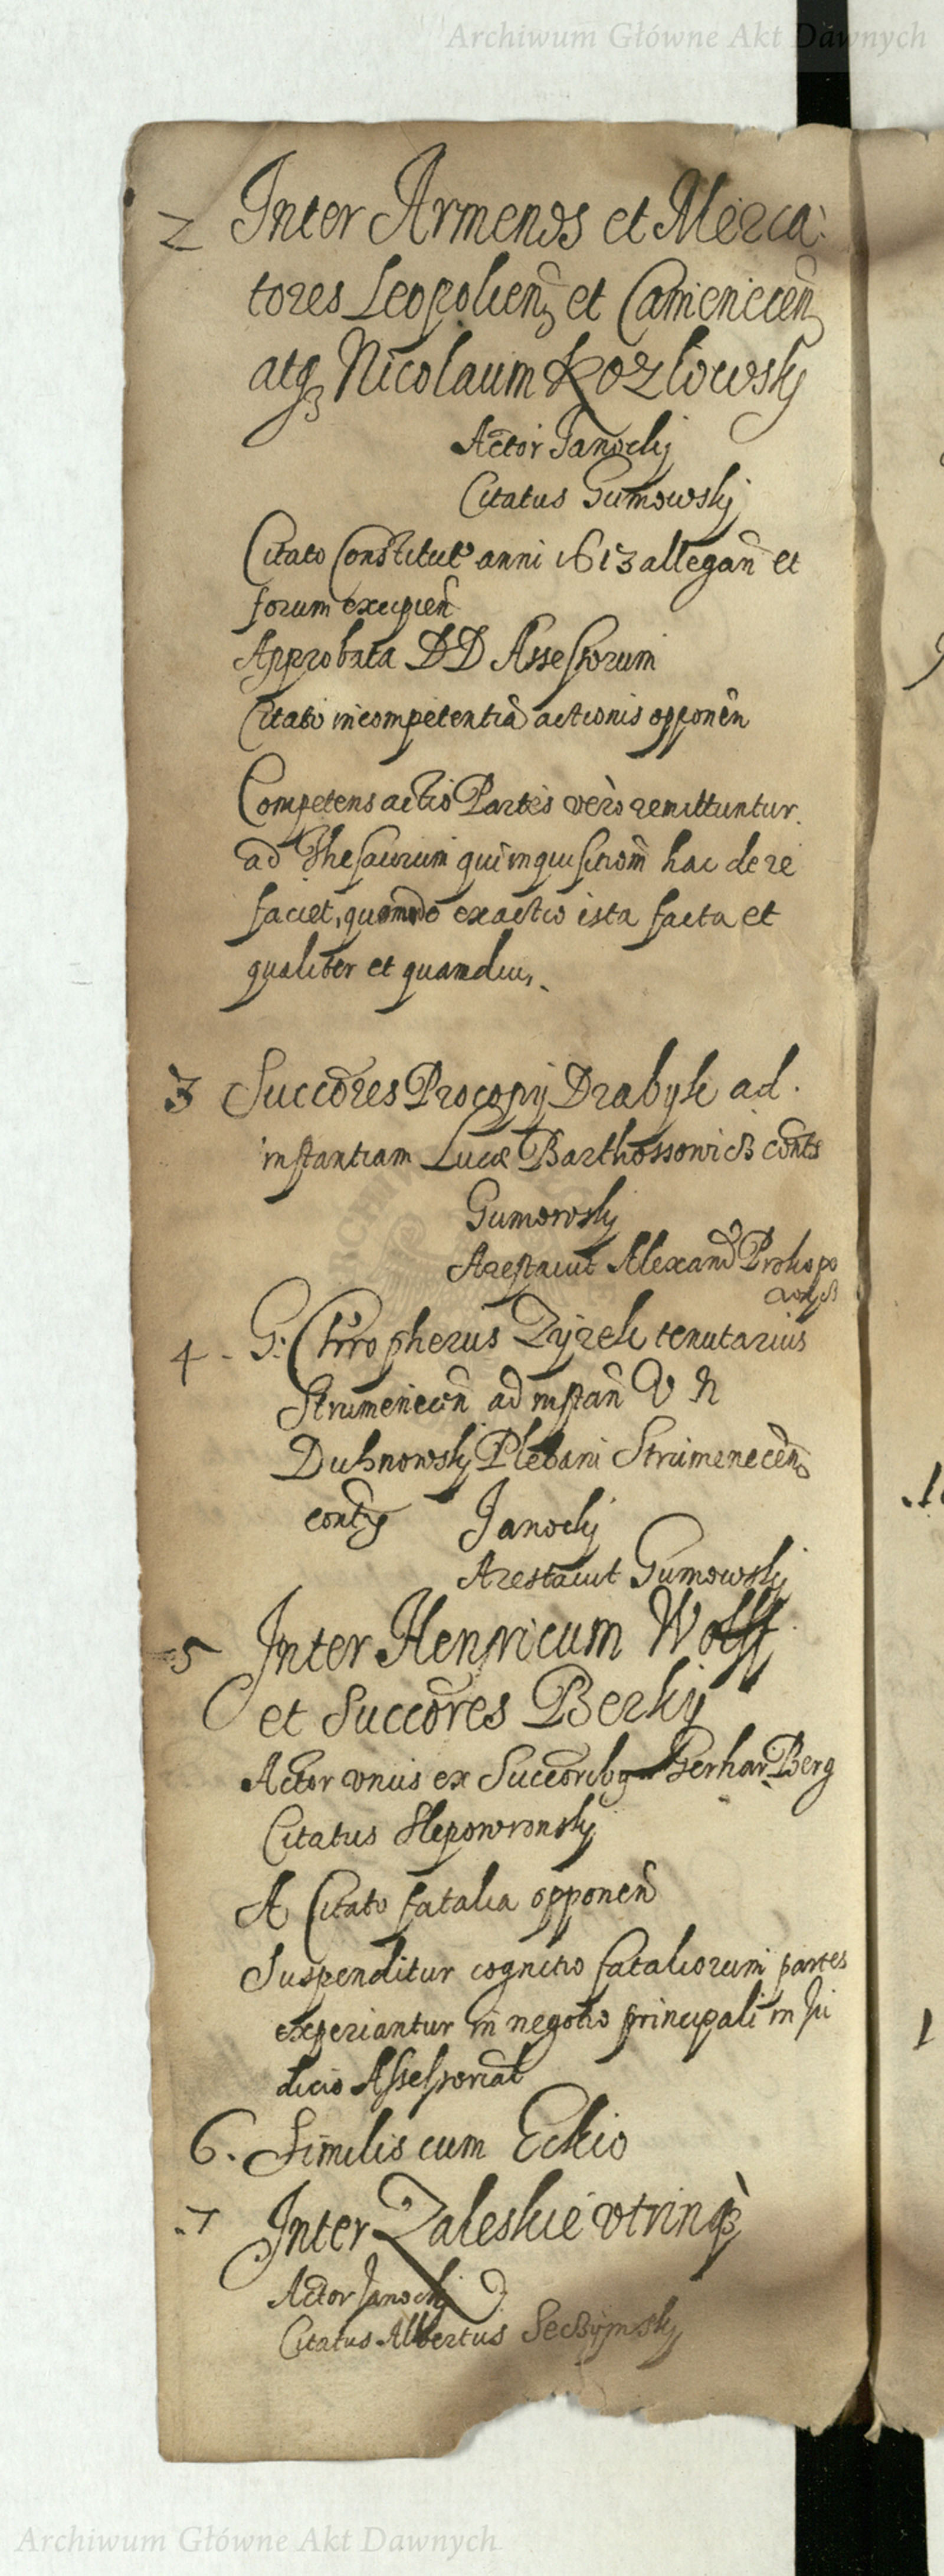 Archiwum Główne Akt Dawnych
2 Inter Armenos et Merca:
tores Leopolien et Camenecen
atq Nicolaum Kozlowsky
Actor Janocky
Citatus Gumowsky
Citato Constitut anni 1613 allegan et
forum excipien
Approbata DD Assessorum
Citato incompetentia actionis opponen
Competens actio Partes vero remittuntur
ad Thesaurum qui inquisitiom hac de re
faciet, quomodo exactio ista facta et
qualiter et quamdiu.
3 Succores Procopy Drabyk ad
instantiam Lucæ Barthossowicz conts
Gumowsky
Arestavit Alexand Prokopo
wicz
4 - G: Chrropherus Zyrek tenutarius
Strumenecen ad instan V N
Duhnowsky Plebani Strumenecen
conts Janocky
Arestavit Gumowsky
5 Inter Henricum Wolff
et Succores Berky
Actor unus ex Succoribq Gerhar Berg
Citatus Slepowronsky
A Citato fatalia opponen
Suspenditur cognitio fataliorum partes
experiantur in negotio principali in Ju
dicio Assessoriat
6. Similis cum Eckio
7 Inter Zaleskie utrinq
Actor Janocky
Citatus Albertus
Archiwum Główne Akt Dawnych